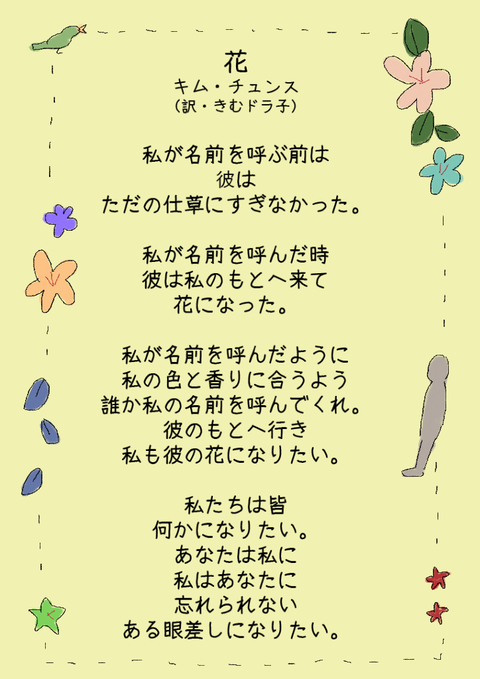 花
キム・チュンス
(訳・きむドラ子)
私が名前を呼ぶ前は
彼は
ただの仕草にすぎなかった。
私が名前を呼んだ時
彼は私のもとへ来て
花になった。
私が名前を呼んだように
私の色と香りに合うよう
誰か私の名前を呼んでくれ。
彼のもとへ行き
私も彼の花になりたい。
私たちは皆
何かになりたい。
あなたは私に
私はあなたに
忘れられない
ある眼差しになりたい。